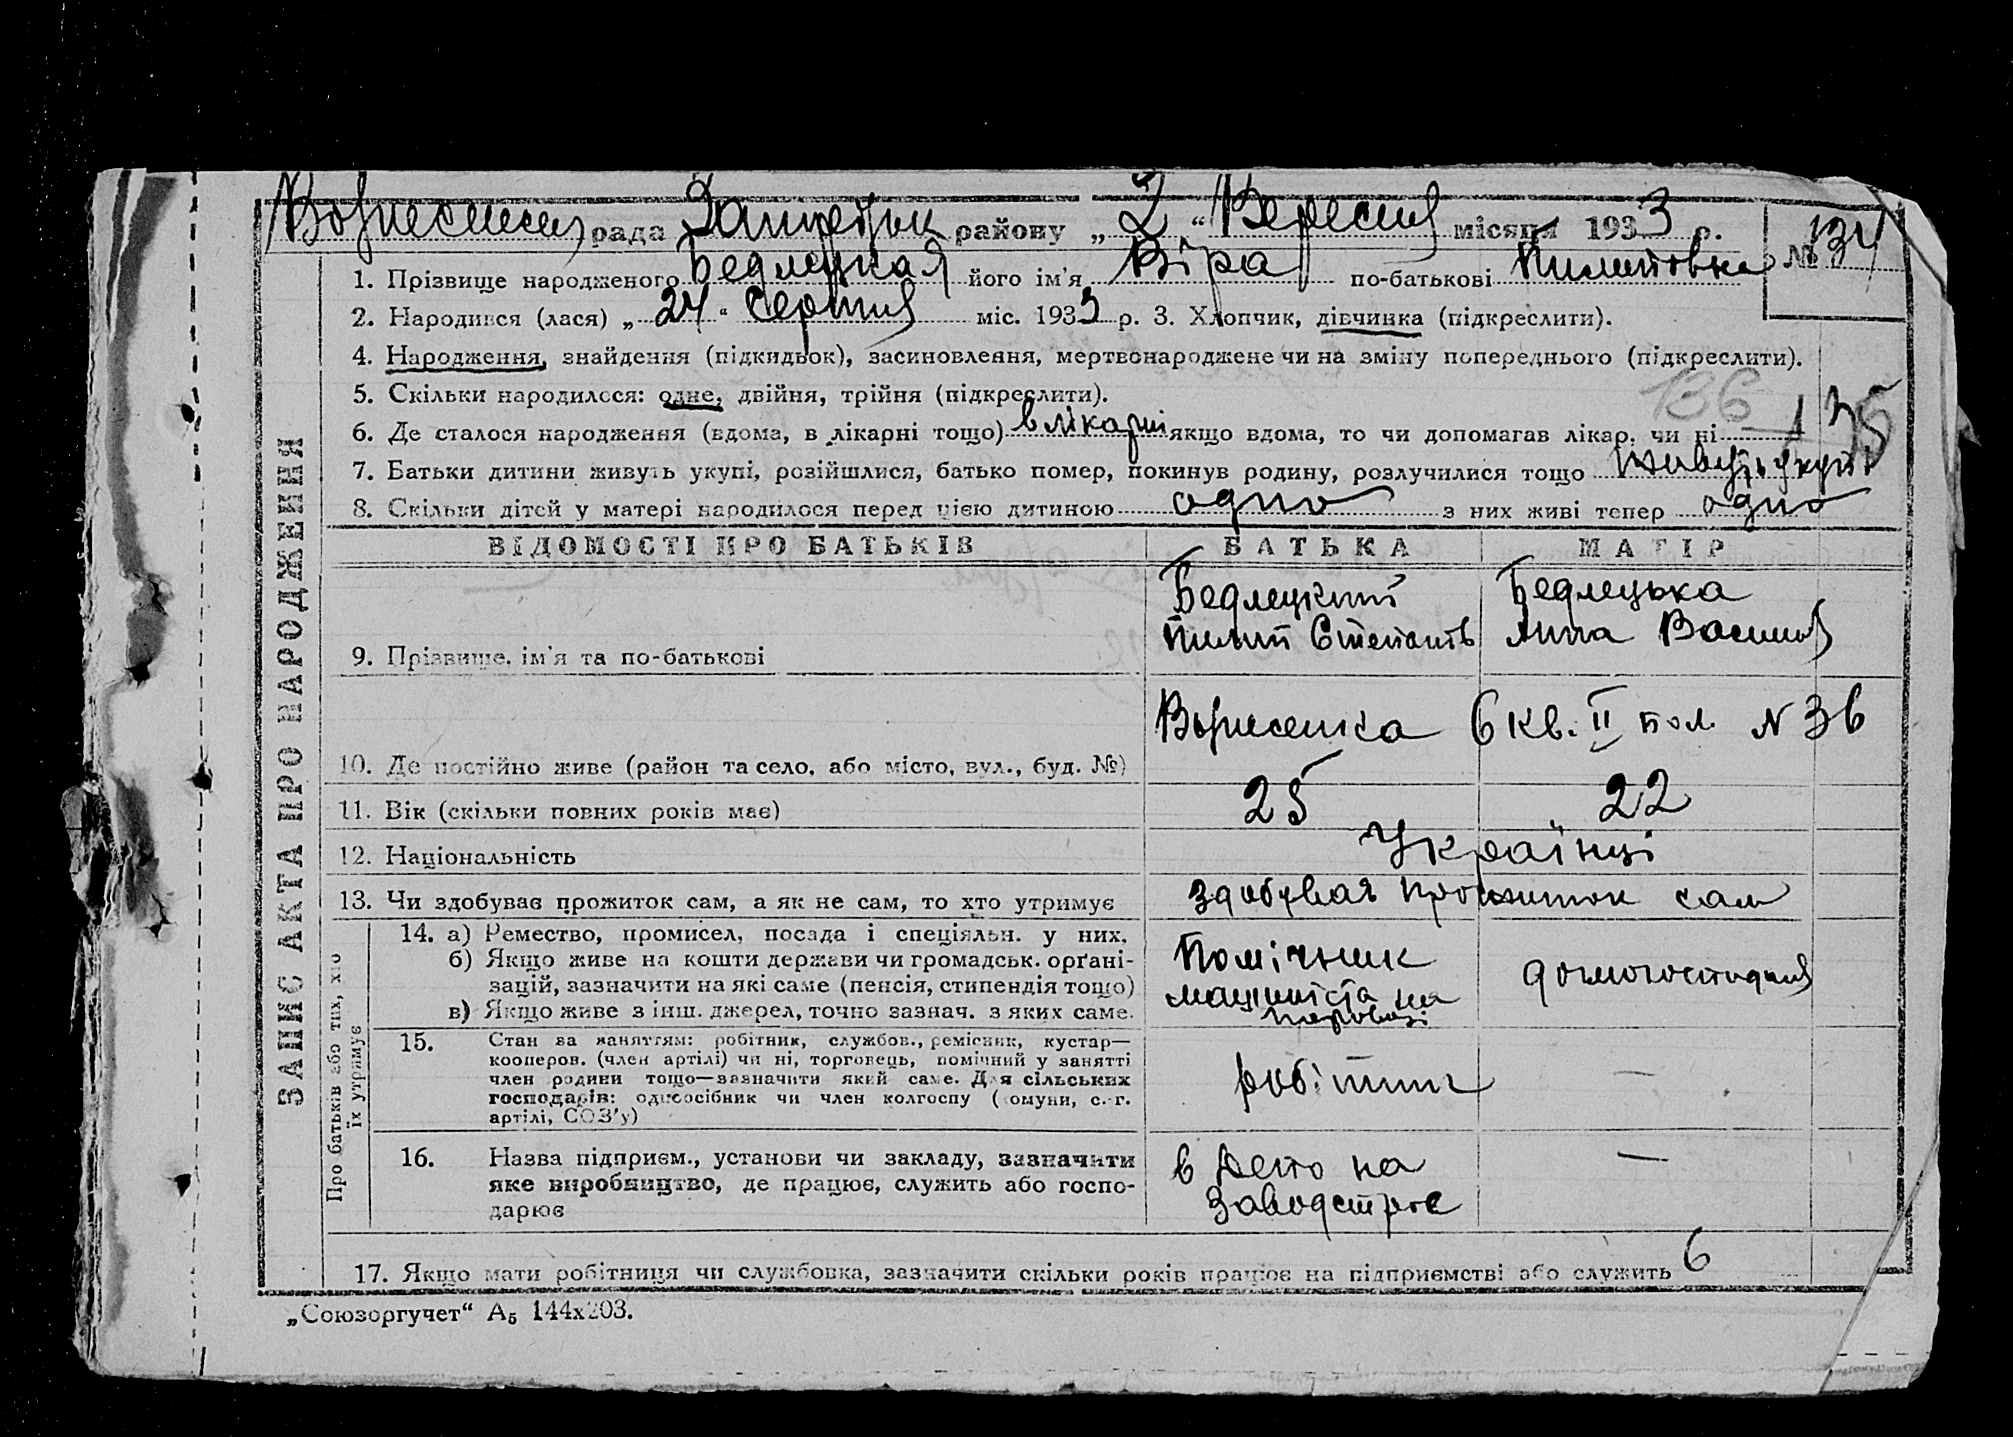 рада району „ 2 “ Вересня місяця 1933 р.
№ 134
1. Прізвище народженого Бедлецкая його ім'я Віра по-батькові Пилиповна
2. Народився (лася) „ 24 “ Серпня міс. 1933 р. 3. Хлопчик, дівчинка (підкреслити).
4. Народження, знайдення (підкидьок), засиновлення, мертвонароджене чи на зміну попереднього (підкреслити).
136
5. Скільки народилося: одне, двійня, трійня (підкреслити).
135
6. Де сталося народження (вдома, в лікарні тощо) в лікарні якщо вдома, то чи допомагав лікар, чи ні
7. Батьки дитини живуть укупі, розійшлися, батько помер, покинув родину, розлучилися тощо живуть укупі
8. Скільки дітей у матері народилося перед цією дитиною одно з них живі тепер одно
ЗАПИС АКТА ПРО НАРОДЖЕННЯ
ВІДОМОСТІ ПРО БАТЬКІВ БАТЬКА МАТІР
Бедлецкий Бедлецька
9. Прізвище, ім'я та по-батькові Пилип Степанів Анна Васил
10. Де постійно живе (район та село, або місто, вул., буд. №) Вознесенка 6 кв. II пол N 36
11. Вік (скільки повних років має) 25 22
12. Національність Українці
13. Чи здобуває прожиток сам, а як не сам, то хто утримує здобував прожиток сам
Про батьків або тих, хто їх утримує
14. а) Ремество, промисел, посада і спеціяльн. у них.
б) Якщо живе на кошти держави чи громадськ. орґані-
зацій, зазначити на які саме (пенсія, стипендія тощо)
в) Якщо живе з інш. джерел, точно зазнач. з яких саме.
Помічник
машиніста на
паровозі
домогосподиня
15. Стан за заняттям: робітник, службов., ремісник, кустар—
кооперов. (член артілі) чи ні, торговець, помічний у занятті
член родини тощо—зазначити який саме. Для сільських
господарів: одноосібник чи член колгоспу (комуни, с.-г.
артілі, СОЗ'у)
робітник —
16. Назва підприєм., установи чи закладу, зазначити
яке виробництво, де працює, служить або госпо-
дарює
в Депо на
Заводстрое
—
17. Якщо мати робітниця чи службовка, зазначити скільки років працює на підприємстві або служить 6
„Союзоргучет“ А5 144х203.